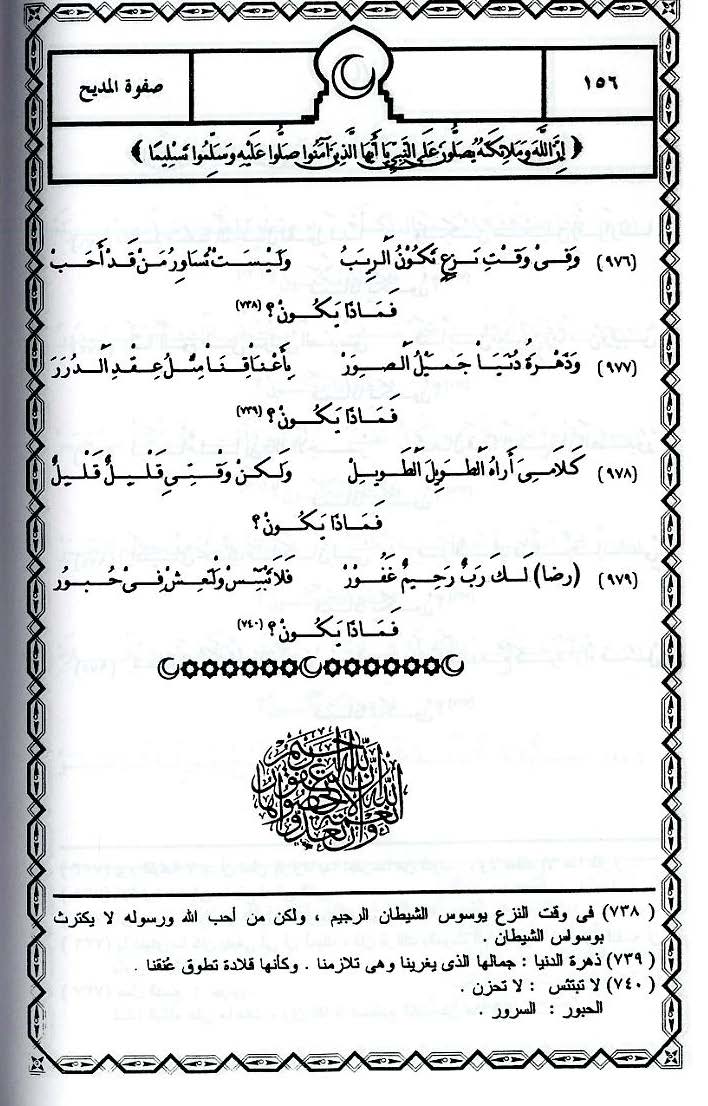 صفوة المديح
١٥٦
﴿ إِنَّ اللَّهَ وَمَلَائِكَتَهُ يُصَلُّونَ عَلَى النَّبِيِّ يَا أَيُّهَا الَّذِينَ آمَنُوا صَلُّوا عَلَيْهِ وَسَلِّمُوا تَسْلِيمًا ﴾
(٩٧٦) وَفِىْ وَقْتِ نَزعٍ تَكُوْنُ الْرِيَبُ وَلَيْسَتْ تُسَاوِرُ مَنْ قَدْ أَحَبْ
فَمَاذَا يَكُونْ؟ (٧٣٨)
(٩٧٧) وَذَهْرَةُ دُنْيَا جَمِيْلُ الْصِوَرْ بِأَعْنَاقِنَا مِثْلُ عِقْدِ الْدُرَرَ
فَمَاذَا يَكُونْ؟ (٧٣٩)
(٩٧٨) كَلَامِى أَرَاهُ الْطَوِيلَ الْطَوِيلْ وَلَكِنْ وَقْتِى قَلْيلٌ قَلْيلٌ
فَمَاذَا يَكُونْ؟
(٩٧٩) (رضا) لَكَ رَبٌ رَحِيمٌ غَفُوْرْ فَلَا تَبْتَئِسْ وَلْتَعِشْ فِىْ حُبُورُ
فَمَاذَا يَكُونْ؟ (٧٤٠)
وإن تعدوا نعمة الله لا تحصوها إن الله لغفور رحيم
( ٧٣٨) فى وقت النزع يوسوس الشيطان الرجيم ، ولكن من أحب الله ورسوله لا يكترث
بوسواس الشيطان .
( ٧٣٩) ذهرة الدنيا : جمالها الذى يغرينا وهى تلازمنا . وكأنها قلادة تطوق عُنقنا .
( ٧٤٠) لا تبتئس : لا تحزن .
الحبور : السرور .